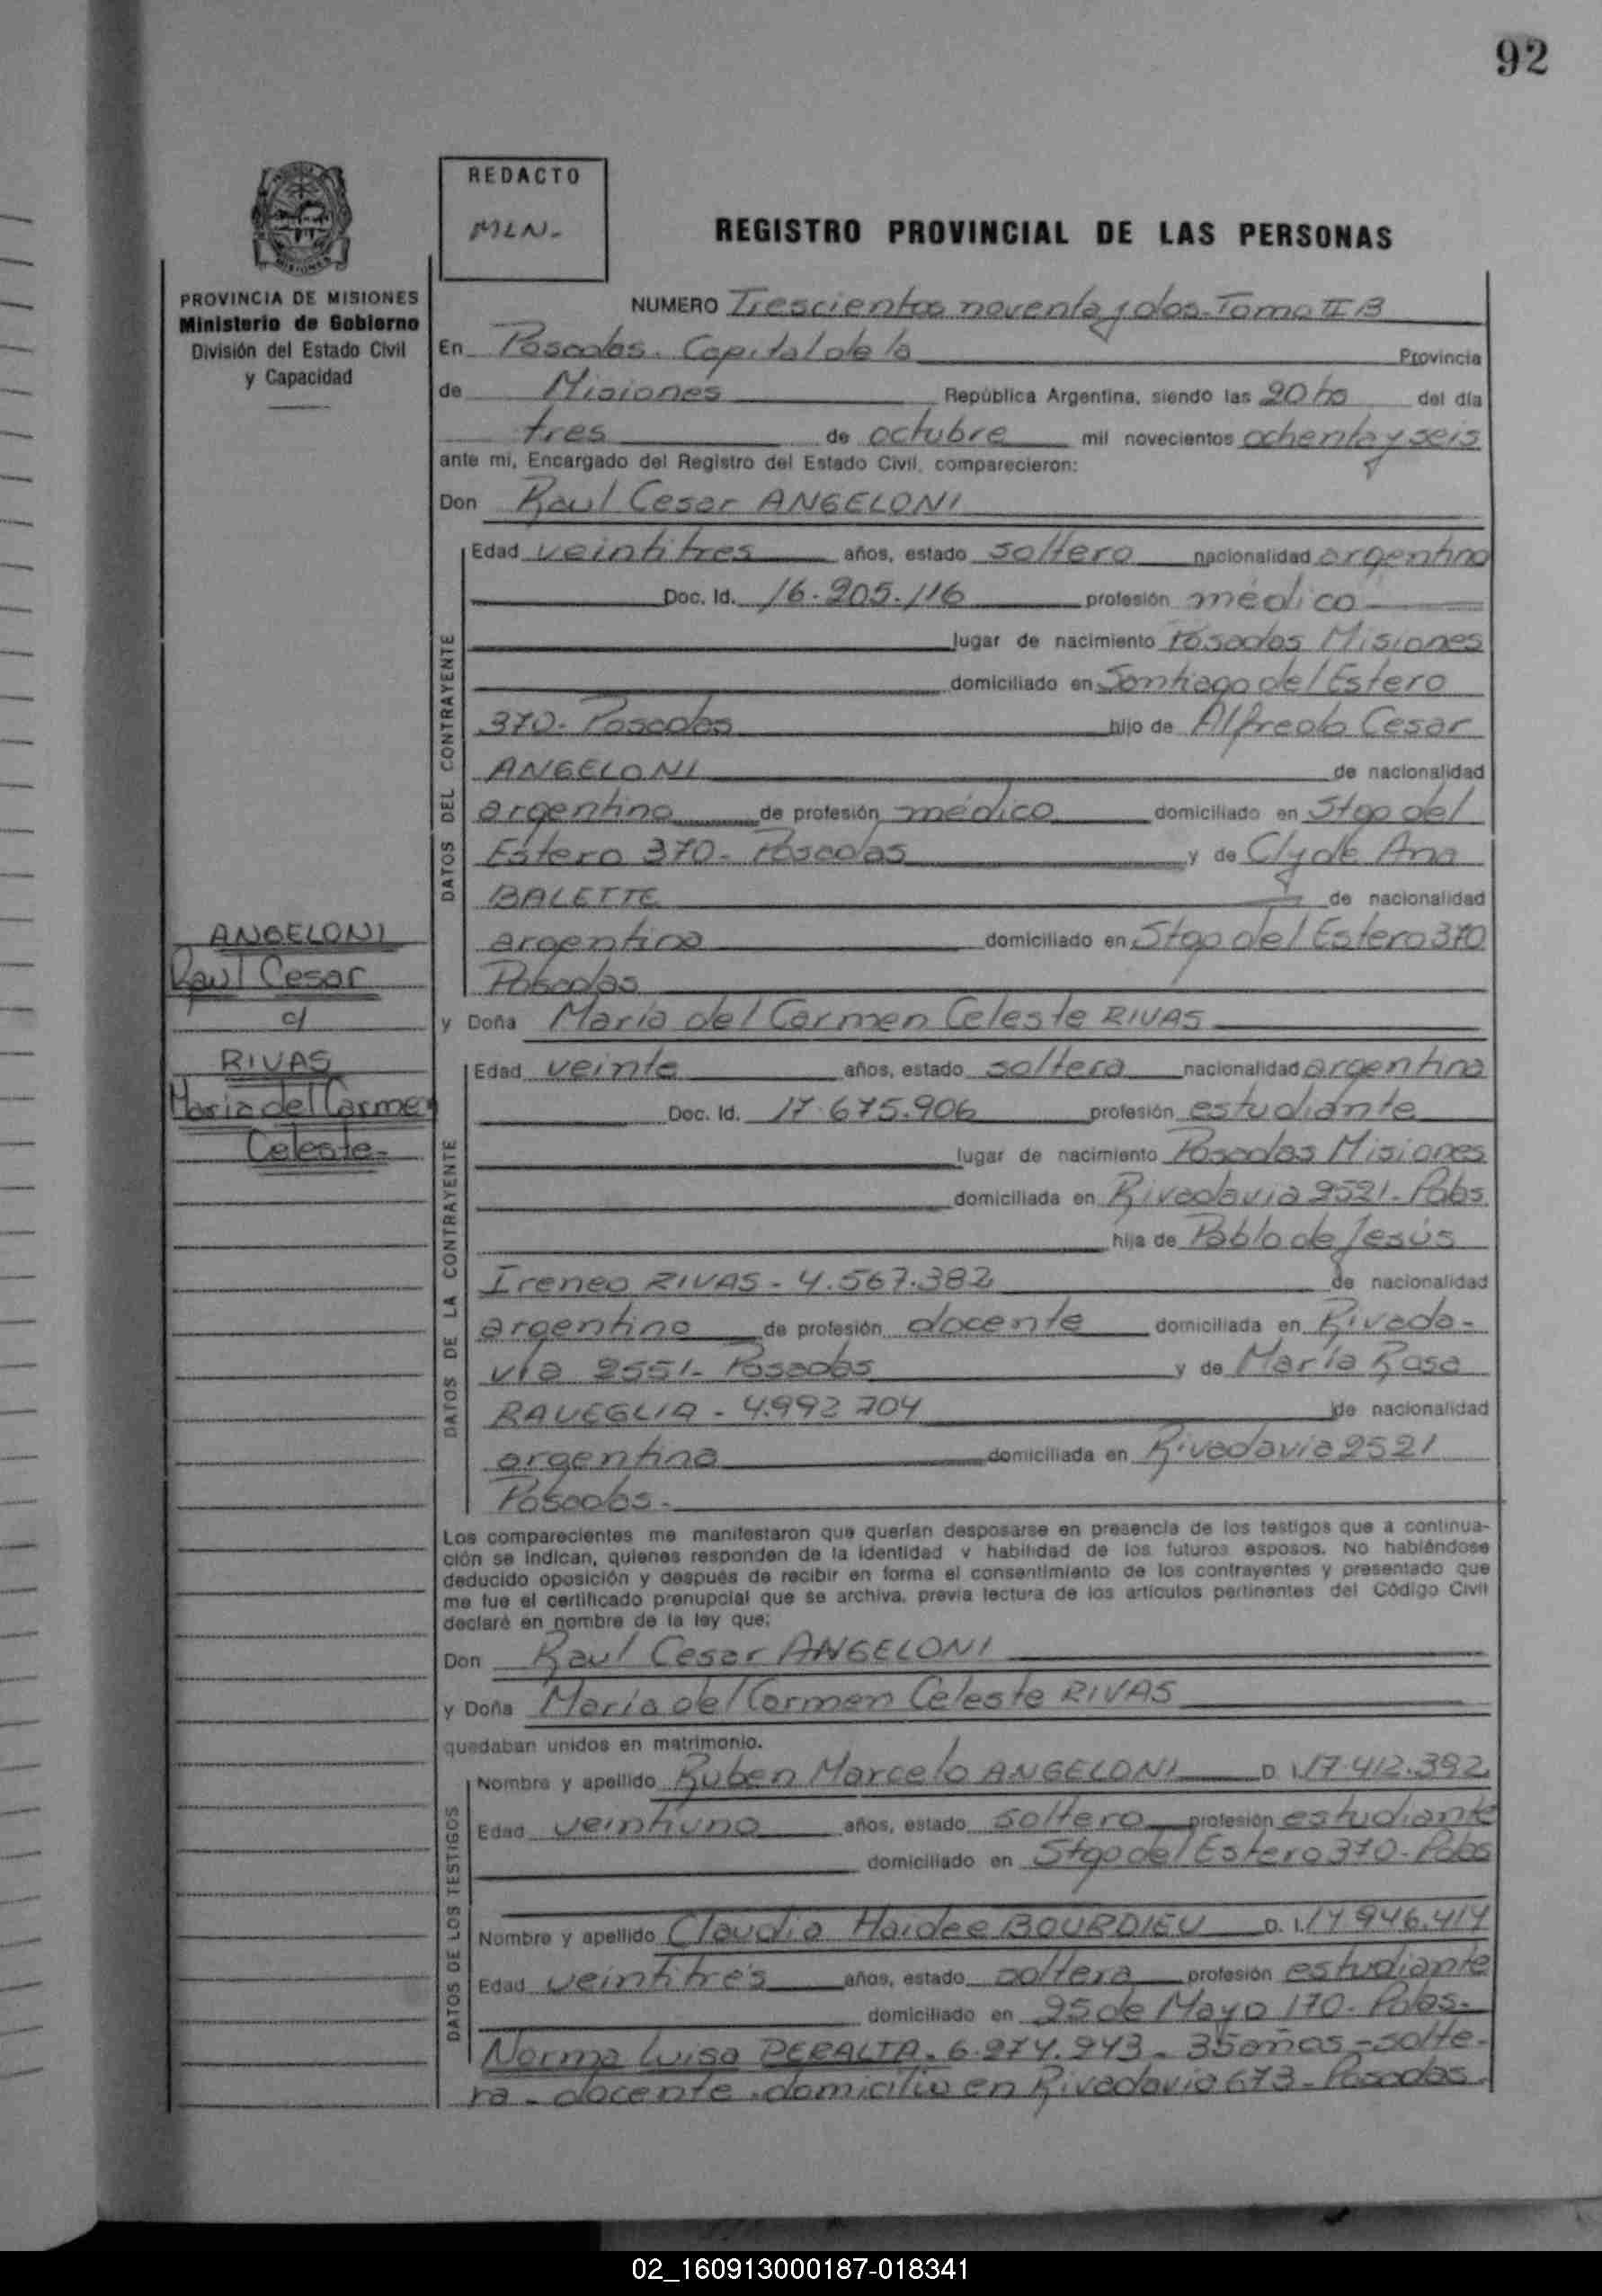 92
REDACTO
MLN-
REGISTRO PROVINCIAL DE LAS PERSONAS
PROVINCIA DE MISIONES
Ministerio de Gobierno
División del Estado Civil
y Capacidad
NUMERO Trescientos noventa y dos-Tomo II B
En Posadas. Capital de la Provincia
de Misiones República Argentina, siendo las 20 hs del día
tres de octubre mil novecientos ochenta y seis
ante mi, Encargado del Registro del Estado Civil, comparecieron:
Don Raul Cesar ANGELONI
DATOS DEL CONTRAYENTE
Edad veintitres años, estado soltero nacionalidad argentino
Doc. Id. 16.205.116 profesión médico
lugar de nacimiento Posadas Misiones
domiciliado en Santiago del Estero
370- Posadas hijo de Alfredo Cesar
ANGELONI de nacionalidad
argentino de profesión médico domiciliado en Stgo del
Estero 370- Posadas y de Clyde Ana
BALETTE de nacionalidad
argentina domiciliado en Stgo del Estero 370
Posadas
ANGELONI
Raul Cesar
c/
RIVAS
Maria del Carmen
Celeste-
y Doña María del Carmen Celeste RIVAS
DATOS DE LA CONTRAYENTE
Edad veinte años, estado soltera nacionalidad argentina
Doc. Id. 17.675.906 profesión estudiante
lugar de nacimiento Posadas Misiones
domiciliada en Rivadavia 2521- Pdas
hija de Pablo de Jesús
Ireneo RIVAS - 4.567.382 de nacionalidad
argentino de profesión docente domiciliada en Rivada-
via 2551- Posadas y de María Rosa
RAVEGLIA - 4.992 704 de nacionalidad
argentina domiciliada en Rivadavia 2521
Posadas-
Los comparecientes me manifestaron que querían desposarse en presencia de los testigos que a continua-
ción se indican, quienes responden de la identidad y habilidad de los futuros esposos. No habiéndose
deducido oposición y después de recibir en forma el consentimiento de los contrayentes y presentado que
me fue el certificado prenupcial que se archiva, previa lectura de los artículos pertinentes del Código Civil
declaré en nombre de la ley que:
Don Raul Cesar ANGELONI
y Doña María del Carmen Celeste RIVAS
quedaban unidos en matrimonio.
DATOS DE LOS TESTIGOS
Nombre y apellido Ruben Marcelo ANGELONI D. I. 17.412.392
Edad veintiuno años, estado soltero profesión estudiante
domiciliado en Stgo del Estero 370- Pdas
Nombre y apellido Claudia Haidee BOURDIEU D. I. 14 946.414
Edad veintitrés años, estado soltera profesión estudiante
domiciliado en 25 de Mayo 170- Pdas-
Norma Luisa PERALTA. 6.274.943. 35 años - solte-
ra - docente. domicilio en Rivadavia 673- Posadas.
02_160913000187-018341